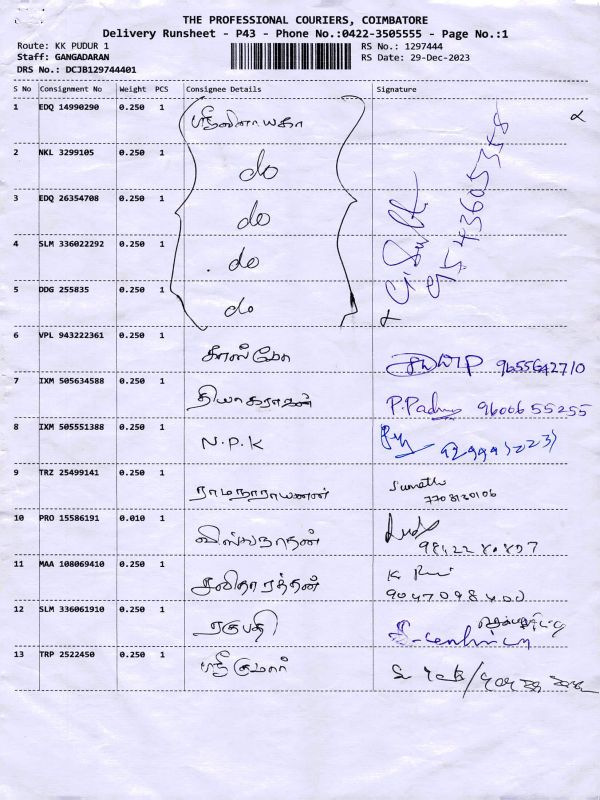 THE PROFESSIONAL COURIERS, COIMBATORE
Delivery Runsheet - P43 - Phone No.:0422-3505555 - Page No.:1
Route: KK PUDUR 1 RS No.: 1297444
Staff: GANGADARAN RS Date: 29-Dec-2023
DRS No.: DCJB129744401
S No Consignment No Weight PCS Consignee Details Signature
1 EDQ 14990290 0.250 1 ஸ்ரீவிநாயகா
2 NKL 3299105 0.250 1 do
3 EDQ 26354708 0.250 1 do
4 SLM 336022292 0.250 1 do
5 DDG 255835 0.250 1 do
6 VPL 943222361 0.250 1 9655642710
7 IXM 505634588 0.250 1 தியாகராஜன் P.Padma 9600655255
8 IXM 505551388 0.250 1 N.P.K
9 TRZ 25499141 0.250 1 ராமநாராயணன் Sumathi
7708120106
10 PRO 15586191 0.010 1 விஸ்வநாதன்
11 MAA 108069410 0.250 1 கவிதா ரத்தன்
9047098400
12 SLM 336061910 0.250 1 ரகுபதி
13 TRP 2522450 0.250 1 ஸ்ரீகுமார்